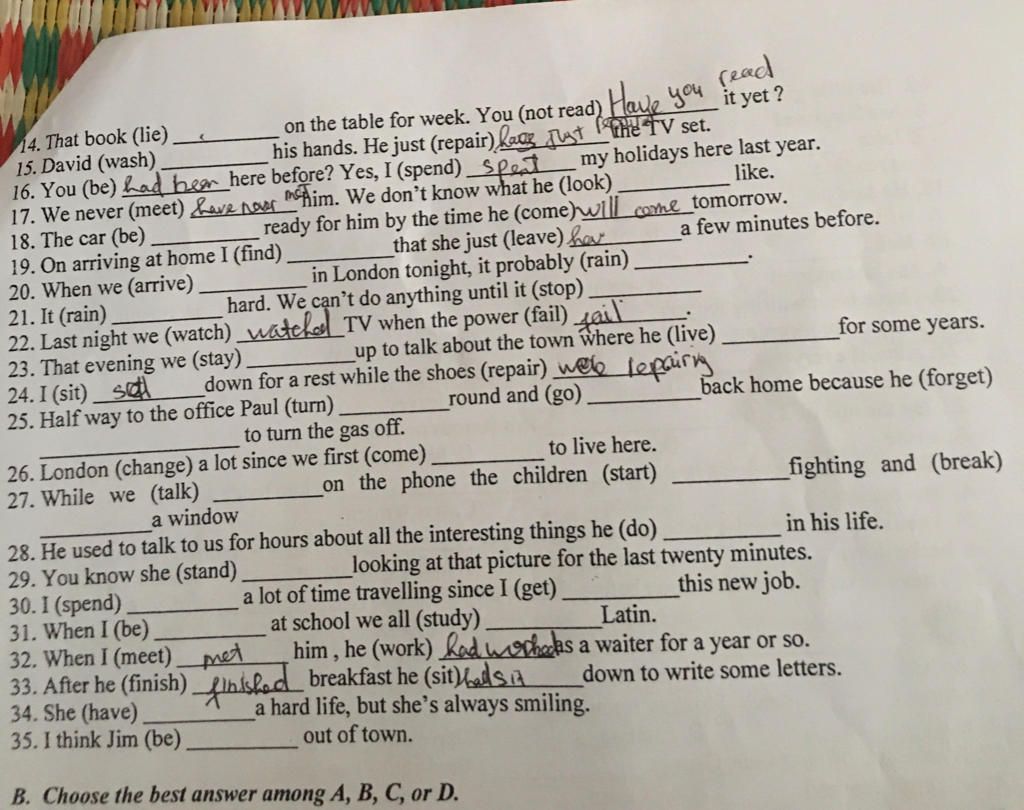 14. That book (lie) ________ on the table for week. You (not read) Have you read it yet ?
15. David (wash) ________ his hands. He just (repair) has just the TV set.
16. You (be) had been here before? Yes, I (spend) spent my holidays here last year.
17. We never (meet) have never met him. We don't know what he (look) ________ like.
18. The car (be) ________ ready for him by the time he (come) will come tomorrow.
19. On arriving at home I (find) ________ that she just (leave) hav a few minutes before.
20. When we (arrive) ________ in London tonight, it probably (rain) ________.
21. It (rain) ________ hard. We can't do anything until it (stop) ________
22. Last night we (watch) watched TV when the power (fail) fail.
23. That evening we (stay) ________ up to talk about the town where he (live) ________ for some years.
24. I (sit) ________ down for a rest while the shoes (repair) were repairing
25. Half way to the office Paul (turn) ________ round and (go) ________ back home because he (forget)
________ to turn the gas off.
26. London (change) a lot since we first (come) ________ to live here.
27. While we (talk) ________ on the phone the children (start) ________ fighting and (break)
________ a window
28. He used to talk to us for hours about all the interesting things he (do) ________ in his life.
29. You know she (stand) ________ looking at that picture for the last twenty minutes.
30. I (spend) ________ a lot of time travelling since I (get) ________ this new job.
31. When I (be) ________ at school we all (study) ________ Latin.
32. When I (meet) met him , he (work) had worked as a waiter for a year or so.
33. After he (finish) finished breakfast he (sit) had sit down to write some letters.
34. She (have) ________ a hard life, but she's always smiling.
35. I think Jim (be) ________ out of town.
B. Choose the best answer among A, B, C, or D.